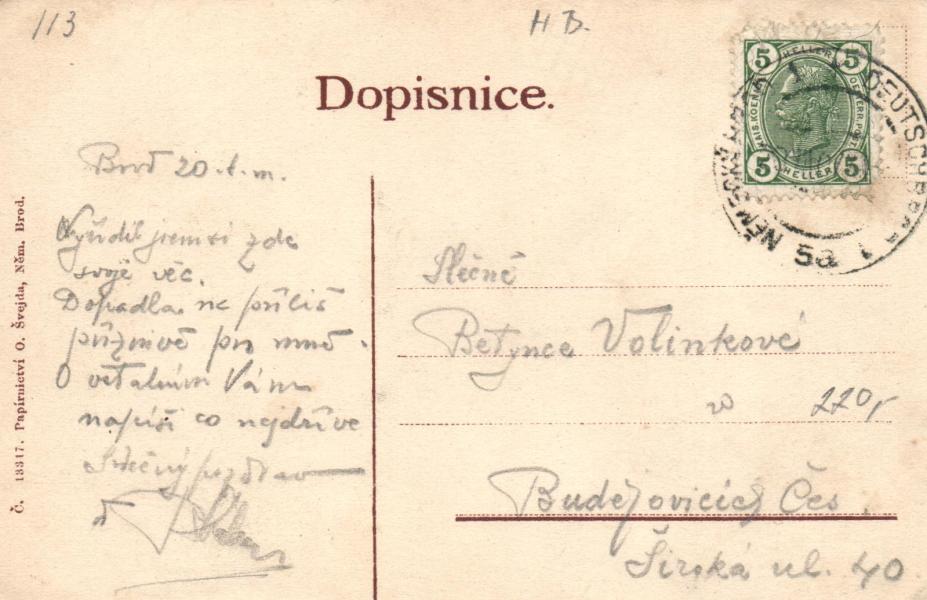 113
H B.
Dopisnice.
5 HELLER 5
KAIS. KOEN. OESTERR. POST.
5 HELLER 5
DEUTSCHBROD
NĚMECKÝ BROD
Brod 20. t. m.
Vyřídil jsem si zde
svojě věc.
Dopadla ne příliš
příznivě pro mně.
O ostatním Vám
napíši co nejdříve
Srdečný pozdrav
Slečně
Betynce Volinkové
v
220,-
Budějovicích Čes.
Široká ul. 40
Č. 13317. Papírnictví O. Švejda, Něm. Brod.